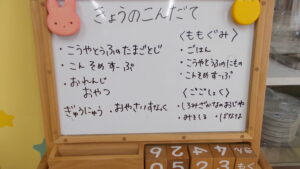 きょうのこんだて
・こうやとうふのたまごとじ
・こんそめすーぷ
・おれんじ
おやつ
ぎゅうにゅう・おやさいすなっく
<ももぐみ>
・ごはん
・こうやとうふのにもの
・こんそめすーぷ
<ごごしょく>
・しろみざかなのおじや
・みそしる ・ばなな
0 5 2 3 もく